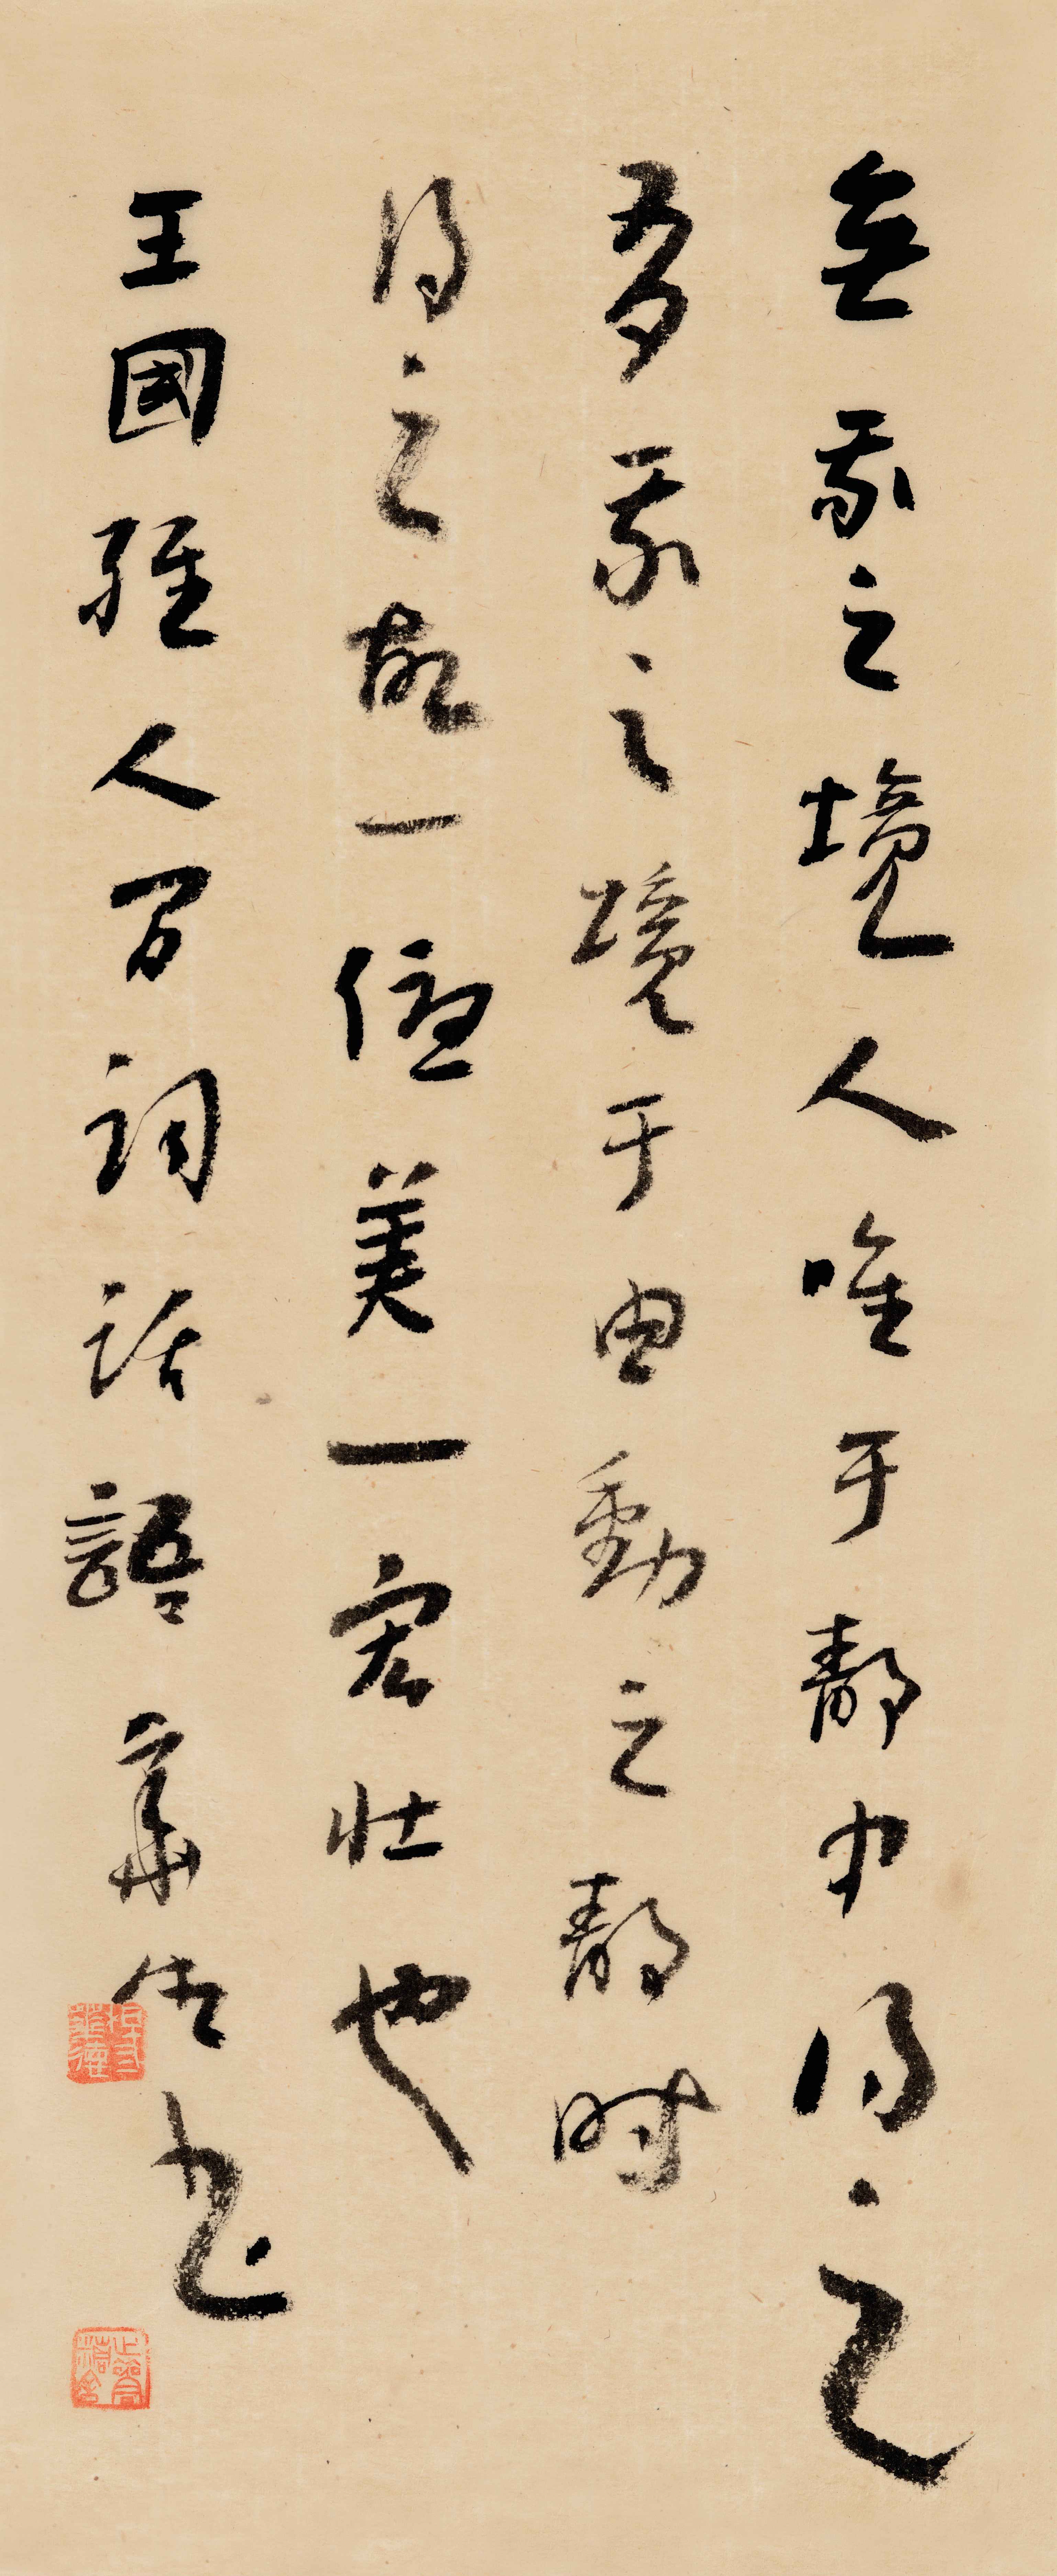 無我之境人唯于靜中得之
有我之境于由動之靜時
得之故一優美一宏壯也
王國維人間詞話語 華生书